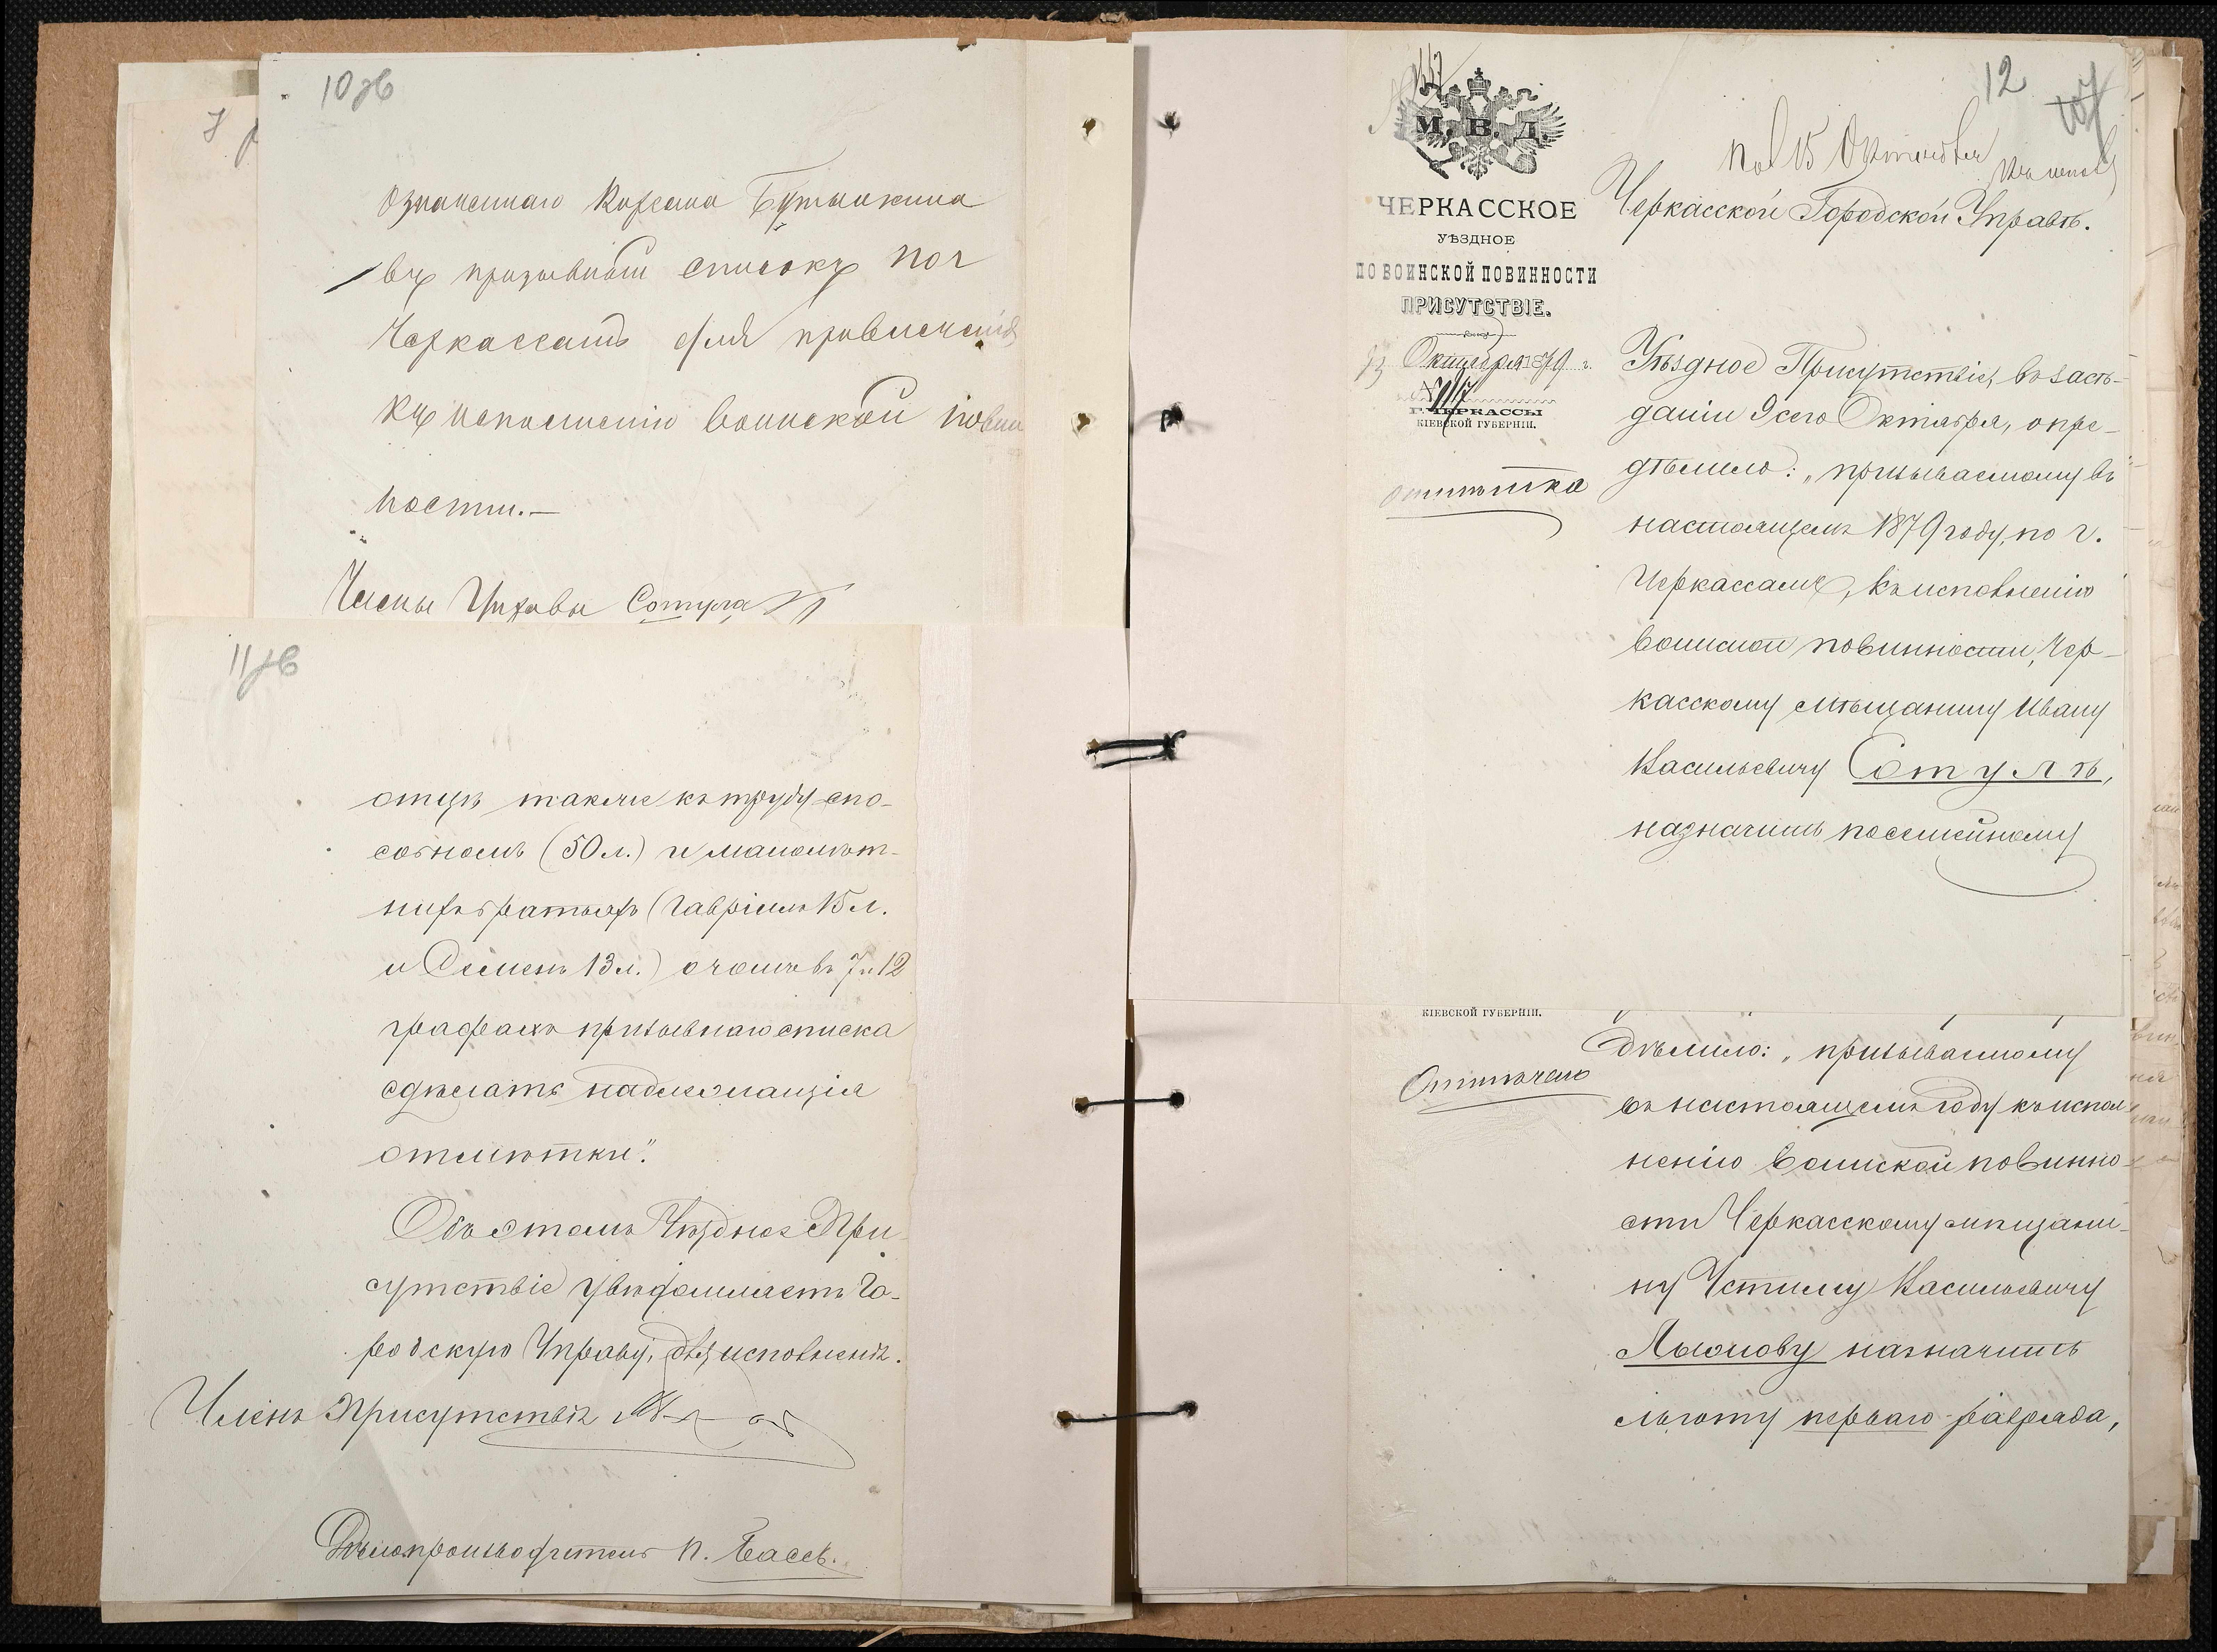 10 об
Означеннаго Бутылкина
въ призывный списокъ по г
Черкассамъ для привлеченія
къ исполненію воинской повин
ности.—
Члены Управы Сотула
11 об
отцѣ также къ труду спо-
собномъ (50 л.) и малолѣт-
нихъ братьяхъ (Гавріилъ 15 л.
и Семенъ 13 л.) о чемъ въ 7 и 12
графахъ призывнаго списка
сдѣлать надлежащія
отмѣтки".
Объ этомъ Уѣздное При-
сутствіе увѣдомляетъ Го-
родскую Управу, для исполненія.
Членъ Присутствія
Дѣлопроизводитель П. Бассъ.
12
Пол 15 Октября
М. В. Д.
ЧЕРКАССКОЕ
УѢЗДНОЕ
ПО ВОИНСКОЙ ПОВИННОСТИ
ПРИСУТСТВІЕ.
13 Октября 1879 г.
№
Г. ЧЕРКАССЫ
КІЕВСКОЙ ГУБЕРНІИ.
отмѣтка
Черкасской Городской Управѣ.
Уѣздное Присутствіе, въ засѣ-
даніи 9 сего Октября, опре-
дѣлило: „призываемому въ
настоящемъ 1879 году, по г.
Черкассамъ, къ исполненію
воинской повинности, Чер-
касскому мѣщанину Ивану
Васильевичу Сотулѣ,
назначить по семейному
КІЕВСКОЙ ГУБЕРНІИ.
Отмѣчено
дѣлило: „призываемому
въ настоящемъ году къ испол
ненію воинской повинно-
сти Черкасскому мѣщани-
ну Устиму Васильевичу
назначить
льготу перваго разряда,